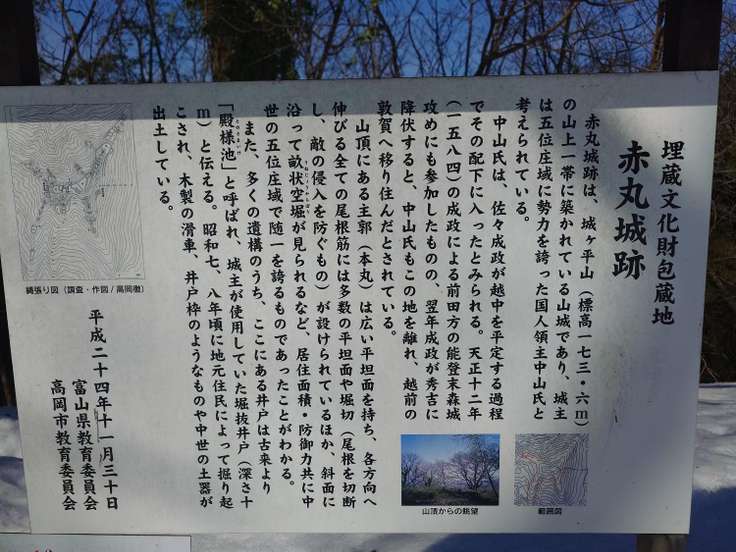 埋蔵文化財包蔵地
赤丸城跡
赤丸城跡は、城ヶ平山（標高一七三・六m）
の山上一帯に築かれている山城であり、城主
は五位庄域に勢力を誇った国人領主中山氏と
考えられている。
中山氏は、佐々成政が越中を平定する過程
でその配下に入ったとみられる。天正十二年
（一五八四）の成政による前田方の能登末森城
攻めにも参加したものの、翌年成政が秀吉に
降伏すると、中山氏もこの地を離れ、越前の
敦賀へ移り住んだとされている。
山頂にある主郭（本丸）は広い平坦面を持ち、各方向へ
伸びる全ての尾根筋には多数の平坦面や堀切（尾根を切断
し、敵の侵入を防ぐもの）が設けられているほか、斜面に
沿って畝状空堀が見られるなど、居住面積・防御力共に中
世の五位庄域で随一を誇るものであったことがわかる。
また、多くの遺構のうち、ここにある井戸は古来より
「殿様池」と呼ばれ、城主が使用していた堀抜井戸（深さ十
m）と伝える。昭和七、八年頃に地元住民によって掘り起
こされ、木製の滑車、井戸枠のようなものや中世の土器が
出土している。
縄張り図（調査・作図/高岡徹）
平成二十四年十一月三十日
富山県教育委員会
高岡市教育委員会
山頂からの眺望
範囲図